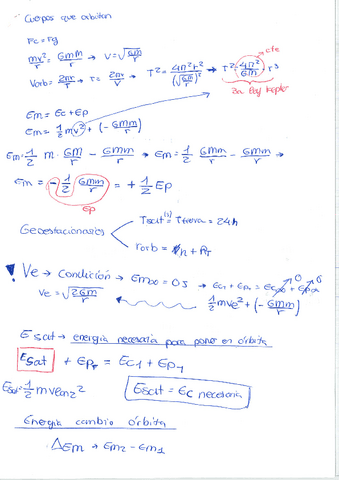 Cuerpos que orbitan
Fc = Fg
mv²/r = GMm/r → v = √(GM/r)
Vorb = 2πr/T → T = 2πr/V → T² = 4π²r²/(√(GM/r))² → T² = (4π²/GM) · r³
cte
3a ley kepler
Em = Ec + Ep
Em = 1/2 mv² + (-GMm/r)
Em = 1/2 m · GM/r - GMm/r → Em = 1/2 GMm/r - GMm/r →
Em = -1/2 GMm/r = +1/2 Ep
Ep
Geoestacionarios
Tsat(s) = Ttierra = 24h
rorb = h + RT
! Ve → Condición → Em∞ = 0J → Ec1 + Ep1 = Ec∞ + Ep∞
0 0
Ve = √(2GM/r)
1/2 mve² + (-GMm/r)
Esat → energía necesaria para poner en órbita
Esat + EpT = Ec1 + Ep1
Esat = 1/2 mvlanz²
Esat = Ec necesaria
Energía cambio órbita
ΔEm → Em2 - Em1